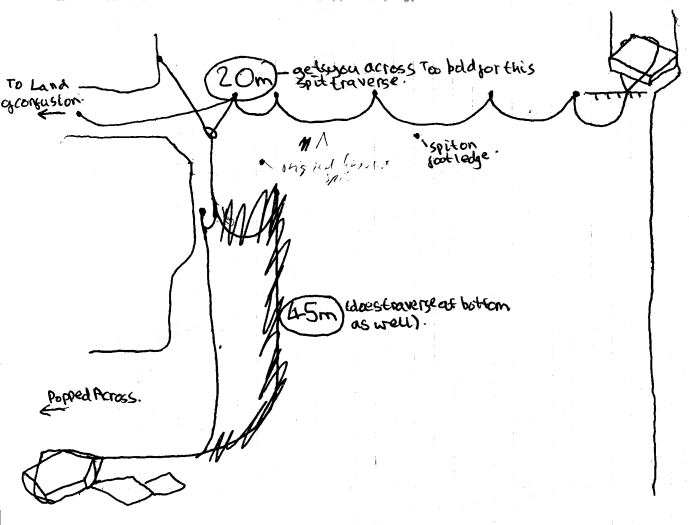 20m
gets you across Too bold for this
spit traverse.
To Land
of confusion.
spit on
foot ledge.
original
45m
(does traverse at bottom
as well).
Popped Across.